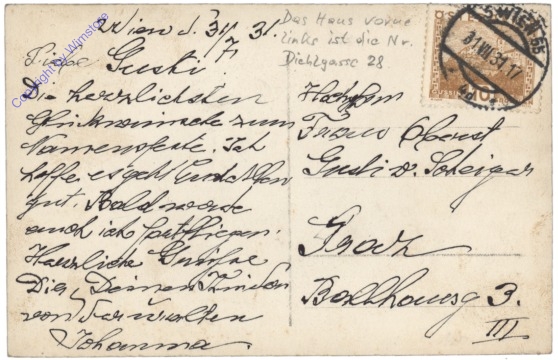 Wien d. 31/7 31.
Liebe Gusti!
Die herzlichsten
Glückwünsche zum
Namensfeste. Ich
hoffe es geht Euch Allen
gut. Bald werde
auch ich fortfliegen.
Herzliche Grüße
Dir, Deinen Kindern
von Formalten
Johanna
Das Haus vorne
links ist die Nr.
Diehlgasse 28
WIEN
31.VII.31.17
10
Frau Oberst
Gusti v.
Graz
Ballhausg 3.
III
Copyright by Wimstore